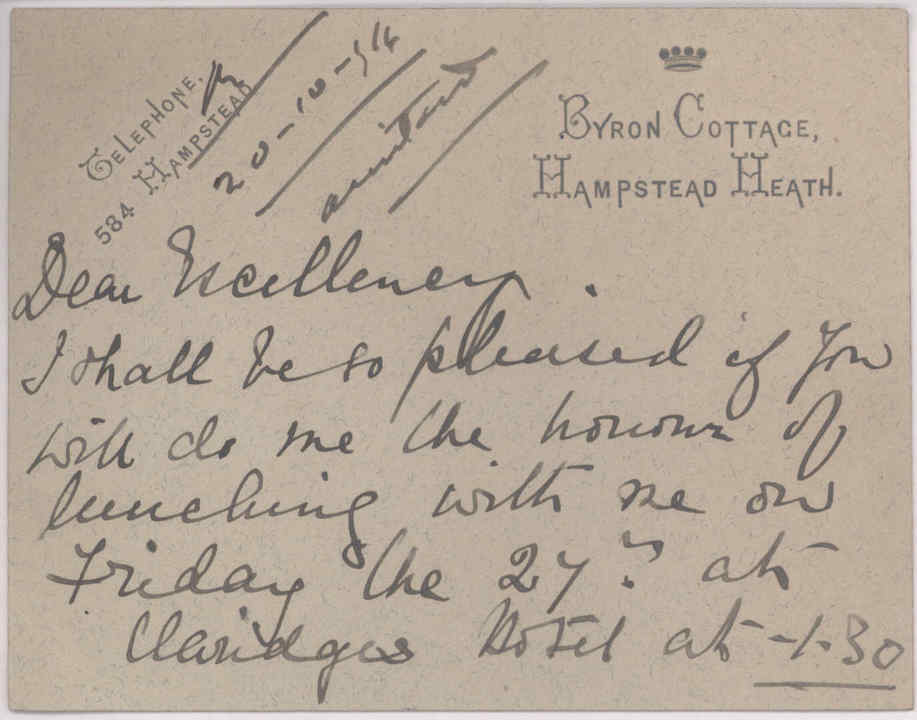 TELEPHONE,
584 HAMPSTEAD
20-10-916
BYRON COTTAGE,
HAMPSTEAD HEATH.
Dear Excellency.
I shall be so pleased if you
will do me the honour of
lunching with me on
Friday the 27th at
Claridges Hotel at -1.30